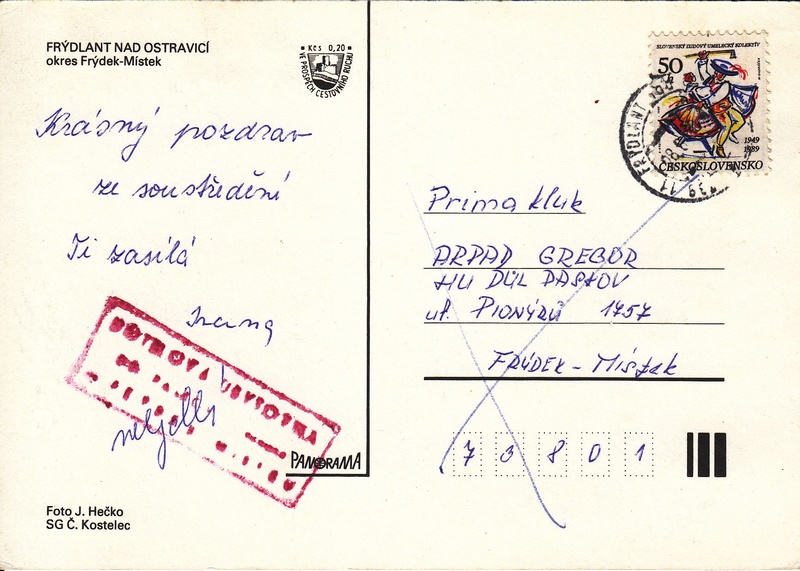 FRÝDLANT NAD OSTRAVICÍ
okres Frýdek-Místek
Kčs 0,20
VE PROSPĚCH CESTOVNÍHO RUCHU
Krásný pozdrav
ze soustředění
Ti zasílá
Ivana
PANORAMA
Foto J. Hečko
SG Č. Kostelec
SLOVENSKÝ ĽUDOVÝ UMELECKÝ KOLEKTÍV
50
1949
1989
ČESKOSLOVENSKO
FRÝDLANT
739 11
Prima kluk
ARPAD GREGOR
HU DŮL PASKOV
ul. PIONÝRŮ 1757
FRÝDEK - Místek
73801